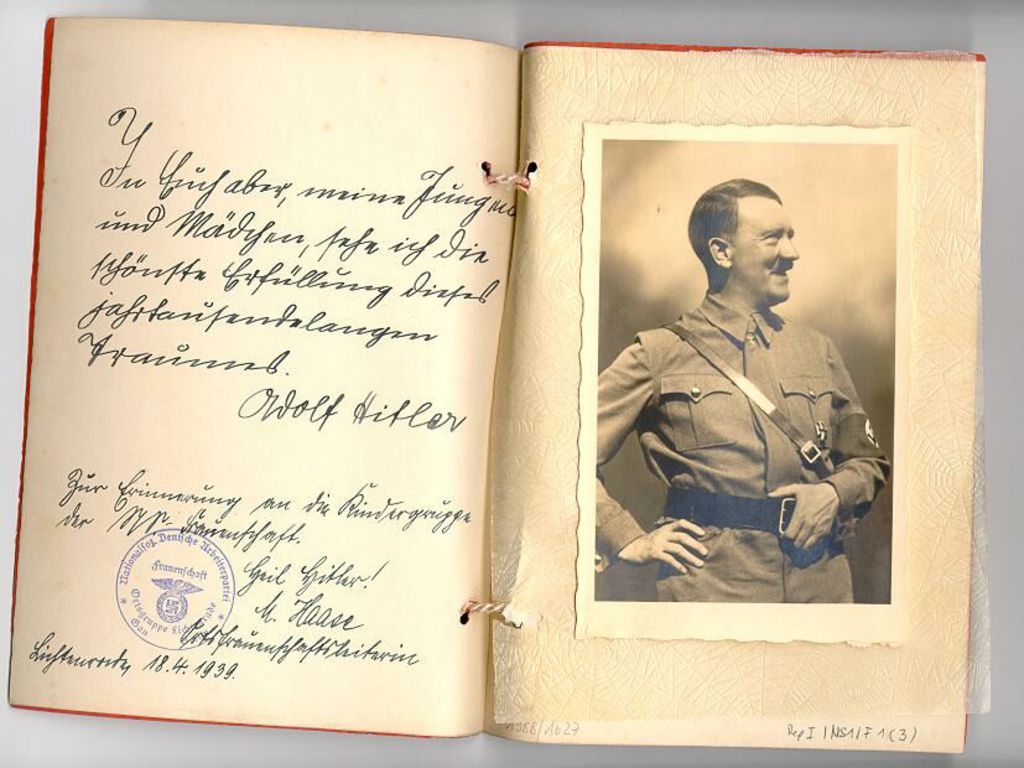 In Euch aber, meine Jungen
und Mädchen, sehe ich die
schönste Erfüllung dieses
jahrtausendelangen
Traumes.
Adolf Hitler
Zur Erinnerung an die Kindergruppe
der NS. Frauenschaft.
Heil Hitler!
M. Haase
Ortsfrauenschaftsleiterin
Lichtenrade, 18.4.1939.
Nationalsoz. Deutsche Arbeiterpartei
Frauenschaft
Ortsgruppe Lichtenrade
Gau
1988/1627
Rep I /NS1/F 1 (3)